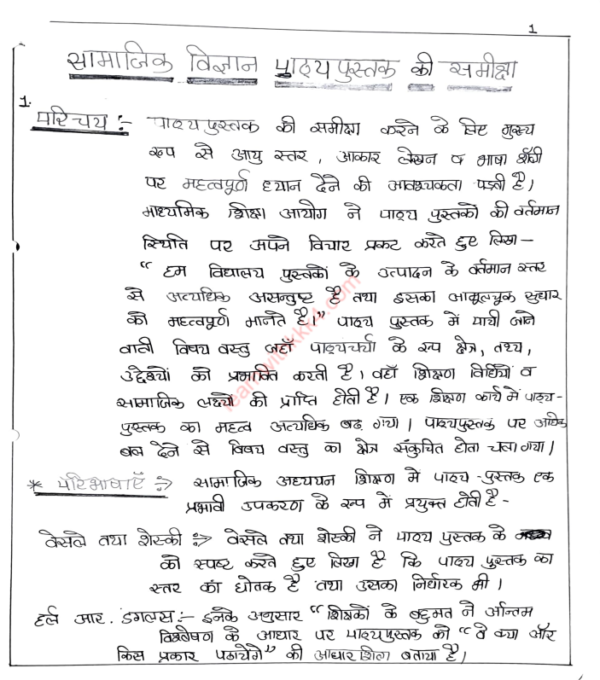 1
सामाजिक विज्ञान पाठ्यपुस्तक की समीक्षा
1.
परिचय :- पाठ्यपुस्तक की समीक्षा करने के लिए मुख्य
रूप से आयु स्तर, आकार लेखन व भाषा शैली
पर महत्वपूर्ण ध्यान देने की आवश्यकता पड़ती है।
माध्यमिक शिक्षा आयोग ने पाठ्य पुस्तकों की वर्तमान
स्थिति पर अपने विचार प्रकट करते हुए लिखा –
“ हम विद्यालय पुस्तकों के उत्पादन के वर्तमान स्तर
से अत्यधिक असन्तुष्ट है तथा इसका आमूलचूक सुधार
को महत्वपूर्ण मानते है।” पाठ्य पुस्तक में पायी जाने
वाली विषय वस्तु जहाँ पाठ्यचर्या के रूप क्षेत्र, तथ्य,
उद्देश्यों को प्रभावित करती है। वहाँ शिक्षण विधियों व
सामाजिक लक्ष्यों की प्राप्ति होती है। एक शिक्षण कार्य में पाठ्य-
पुस्तक का महत्व अत्यधिक बढ़ गया। पाठ्यपुस्तक पर अधिक
बल देने से विषय वस्तु का क्षेत्र संकुचित होता चला गया।
* परिभाषाएँ :⇒ सामाजिक अध्ययन शिक्षण में पाठ्य-पुस्तक एक
प्रभावी उपकरण के रूप में प्रयुक्त होती है –
वेसले तथा शेस्की :⇒ वेसले तथा शेस्की ने पाठ्य पुस्तक के
को स्पष्ट करते हुए लिखा है कि पाठ्य पुस्तक का
स्तर का द्योतक है तथा उसका निर्धारक भी।
हर्ल आर. डगलस :- इनके अनुसार “ शिक्षकों के बहुमत ने अन्तिम
विश्लेषण के आधार पर पाठ्यपुस्तक को “ वे क्या और
किस प्रकार पढायेंगे” की आधारशिला बताया है।